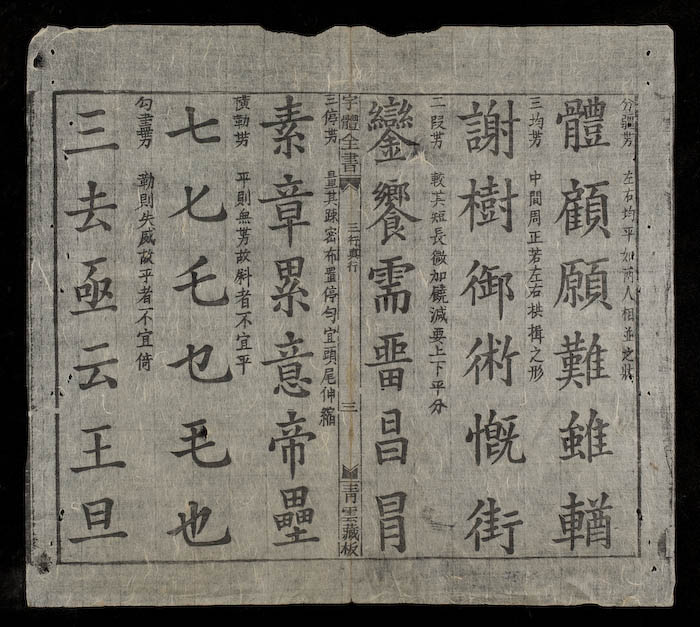 分疆势 左右均平如两人相並之狀
體顧願難雖輶
三均势 中間周正若左右拱揖之形
謝樹御術慨街
二段势 較其短長微加饒減要上下平分
鑾饗需畱昌冐
字體全書 三 青雲藏板
三停势 量其踈密布置停勻宜頭尾伸縮
素章累意帝壘
橫勒势 平則無势故斜者不宜平
七匕乇乜毛也
勾畫势 勒則失威故平者不宜倚
三去亟云王旦